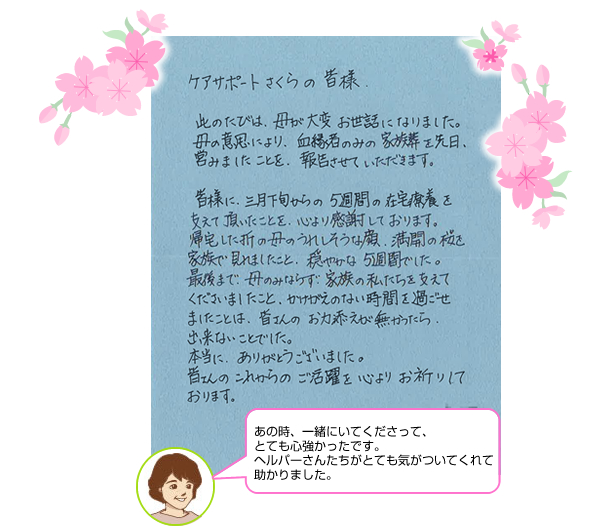 ケアサポートさくらの皆様.
此のたびは、母が大変お世話になりました。
母の意思により、血縁者のみの家族葬を先日、
営みましたことを、報告させていただきます。
皆様に、三月下旬からの5週間の在宅療養を
支えて頂いたことを、心より感謝しております。
帰宅した折の母のうれしそうな顔、満開の桜を
家族で見れましたこと、穏やかな5週間でした。
最後まで、母のみならず、家族の私たちを支えて
くださいましたこと、かけがえのない時間を過ごせ
ましたことは、皆さんのお力添えが無かったら、
出来ないことでした。
本当に、ありがとうございました。
皆さんのこれからのご活躍を心よりお祈りして
おります。
あの時、一緒にいてくださって、
とても心強かったです。
ヘルパーさんたちがとても気がついてくれて
助かりました。